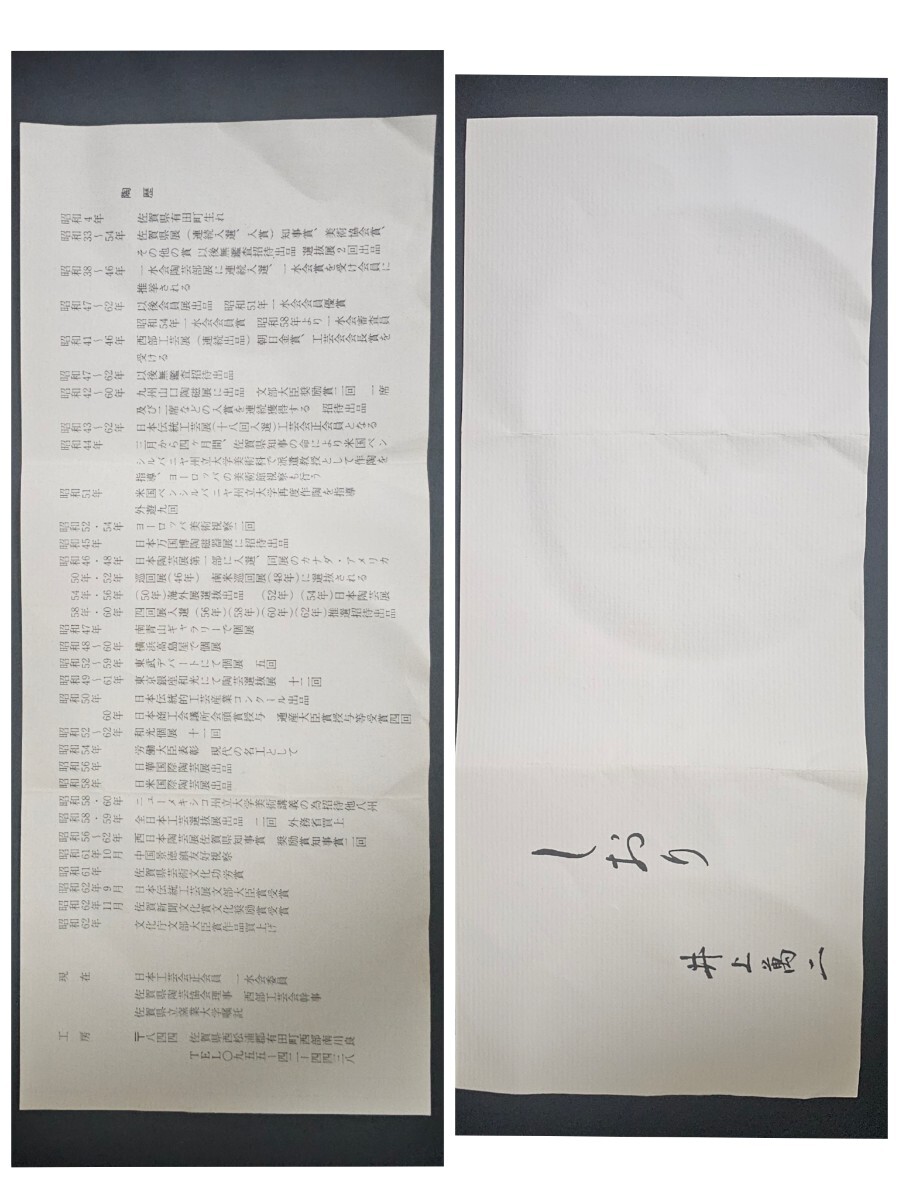 陶歴
昭和4年 佐賀県有田町生れ
昭和33~54年 佐賀県展(連続入選、入賞)知事賞、美術協会賞、
その他の賞 以後無鑑査招待出品 選抜展2回出品
昭和38~46年 一水会陶芸部展に連続入選、一水会賞を受け会員に
推挙される
昭和47~62年 以後会員展出品 昭和51年一水会会員優賞
昭和54年一水会会員賞 昭和58年より一水会審査員
昭和41~46年 西部工芸展(連続出品)朝日金賞、工芸会会長賞を
受ける
昭和47~62年 以後無鑑査招待出品
昭和42~60年 九州山口陶磁展に出品 文部大臣奨励賞二回 一席
及び二席などの入賞を連続獲得する 招待出品
昭和43~62年 日本伝統工芸展(十八回入選)工芸会正会員となる
昭和44年 三月から四ヶ月間、佐賀県知事の命により米国ペン
シルバニヤ州立大学美術科で派遣教授として作陶を
指導、ヨーロッパの美術館視察も行う
昭和51年 米国ペンシルバニヤ州立大学再度作陶を指導
外遊九回
昭和52・54年 ヨーロッパ美術視察二回
昭和45年 日本万国博陶磁器展に招待出品
昭和46・48年 日本陶芸展第一部に入選、同展のカナダ・アメリカ
50年・52年 巡回展(46年) 南米巡回展(48年)に選抜される
54年・56年 (50年)海外展選抜出品 (52年)(54年)日本陶芸展
58年・60年 四回展入選(56年)(58年)(60年)(62年)推選招待出品
昭和47年 南青山ギャラリーで個展
昭和48~60年 横浜高島屋で個展
昭和52~59年 東武デパートにて個展 五回
昭和49~61年 東京銀座和光にて陶芸選抜展 十二回
昭和50年 日本伝統的工芸産業コンクール出品
60年 日本商工会議所会頭賞授与 通産大臣賞授与等受賞四回
昭和52~62年 和光個展 十一回
昭和54年 労働大臣表彰 現代の名工として
昭和56年 日華国際陶芸展出品
昭和58年 日米国際陶芸展出品
昭和58・60年 ニューメキシコ州立大学美術講義の為招待他八州
昭和58・59年 全日本工芸選抜展出品 二回 外務省買上
昭和56~62年 西日本陶芸展佐賀県知事賞 奨励賞知事賞二回
昭和61年10月 中国景徳鎮友好視察
昭和61年 佐賀県芸術文化功労賞
昭和62年9月 日本伝統工芸展文部大臣賞受賞
昭和62年11月 佐賀新聞文化賞文化奨励賞受賞
昭和62年 文化庁文部大臣賞作品買上げ
現在 日本工芸会正会員 一水会委員
佐賀県陶芸協会理事 西部工芸会幹事
佐賀県立窯業大学嘱託
工房 〒八四四 佐賀県西松浦郡有田町西部南川良
TEL〇九五五-四二-四四三八
しおり
井上萬二